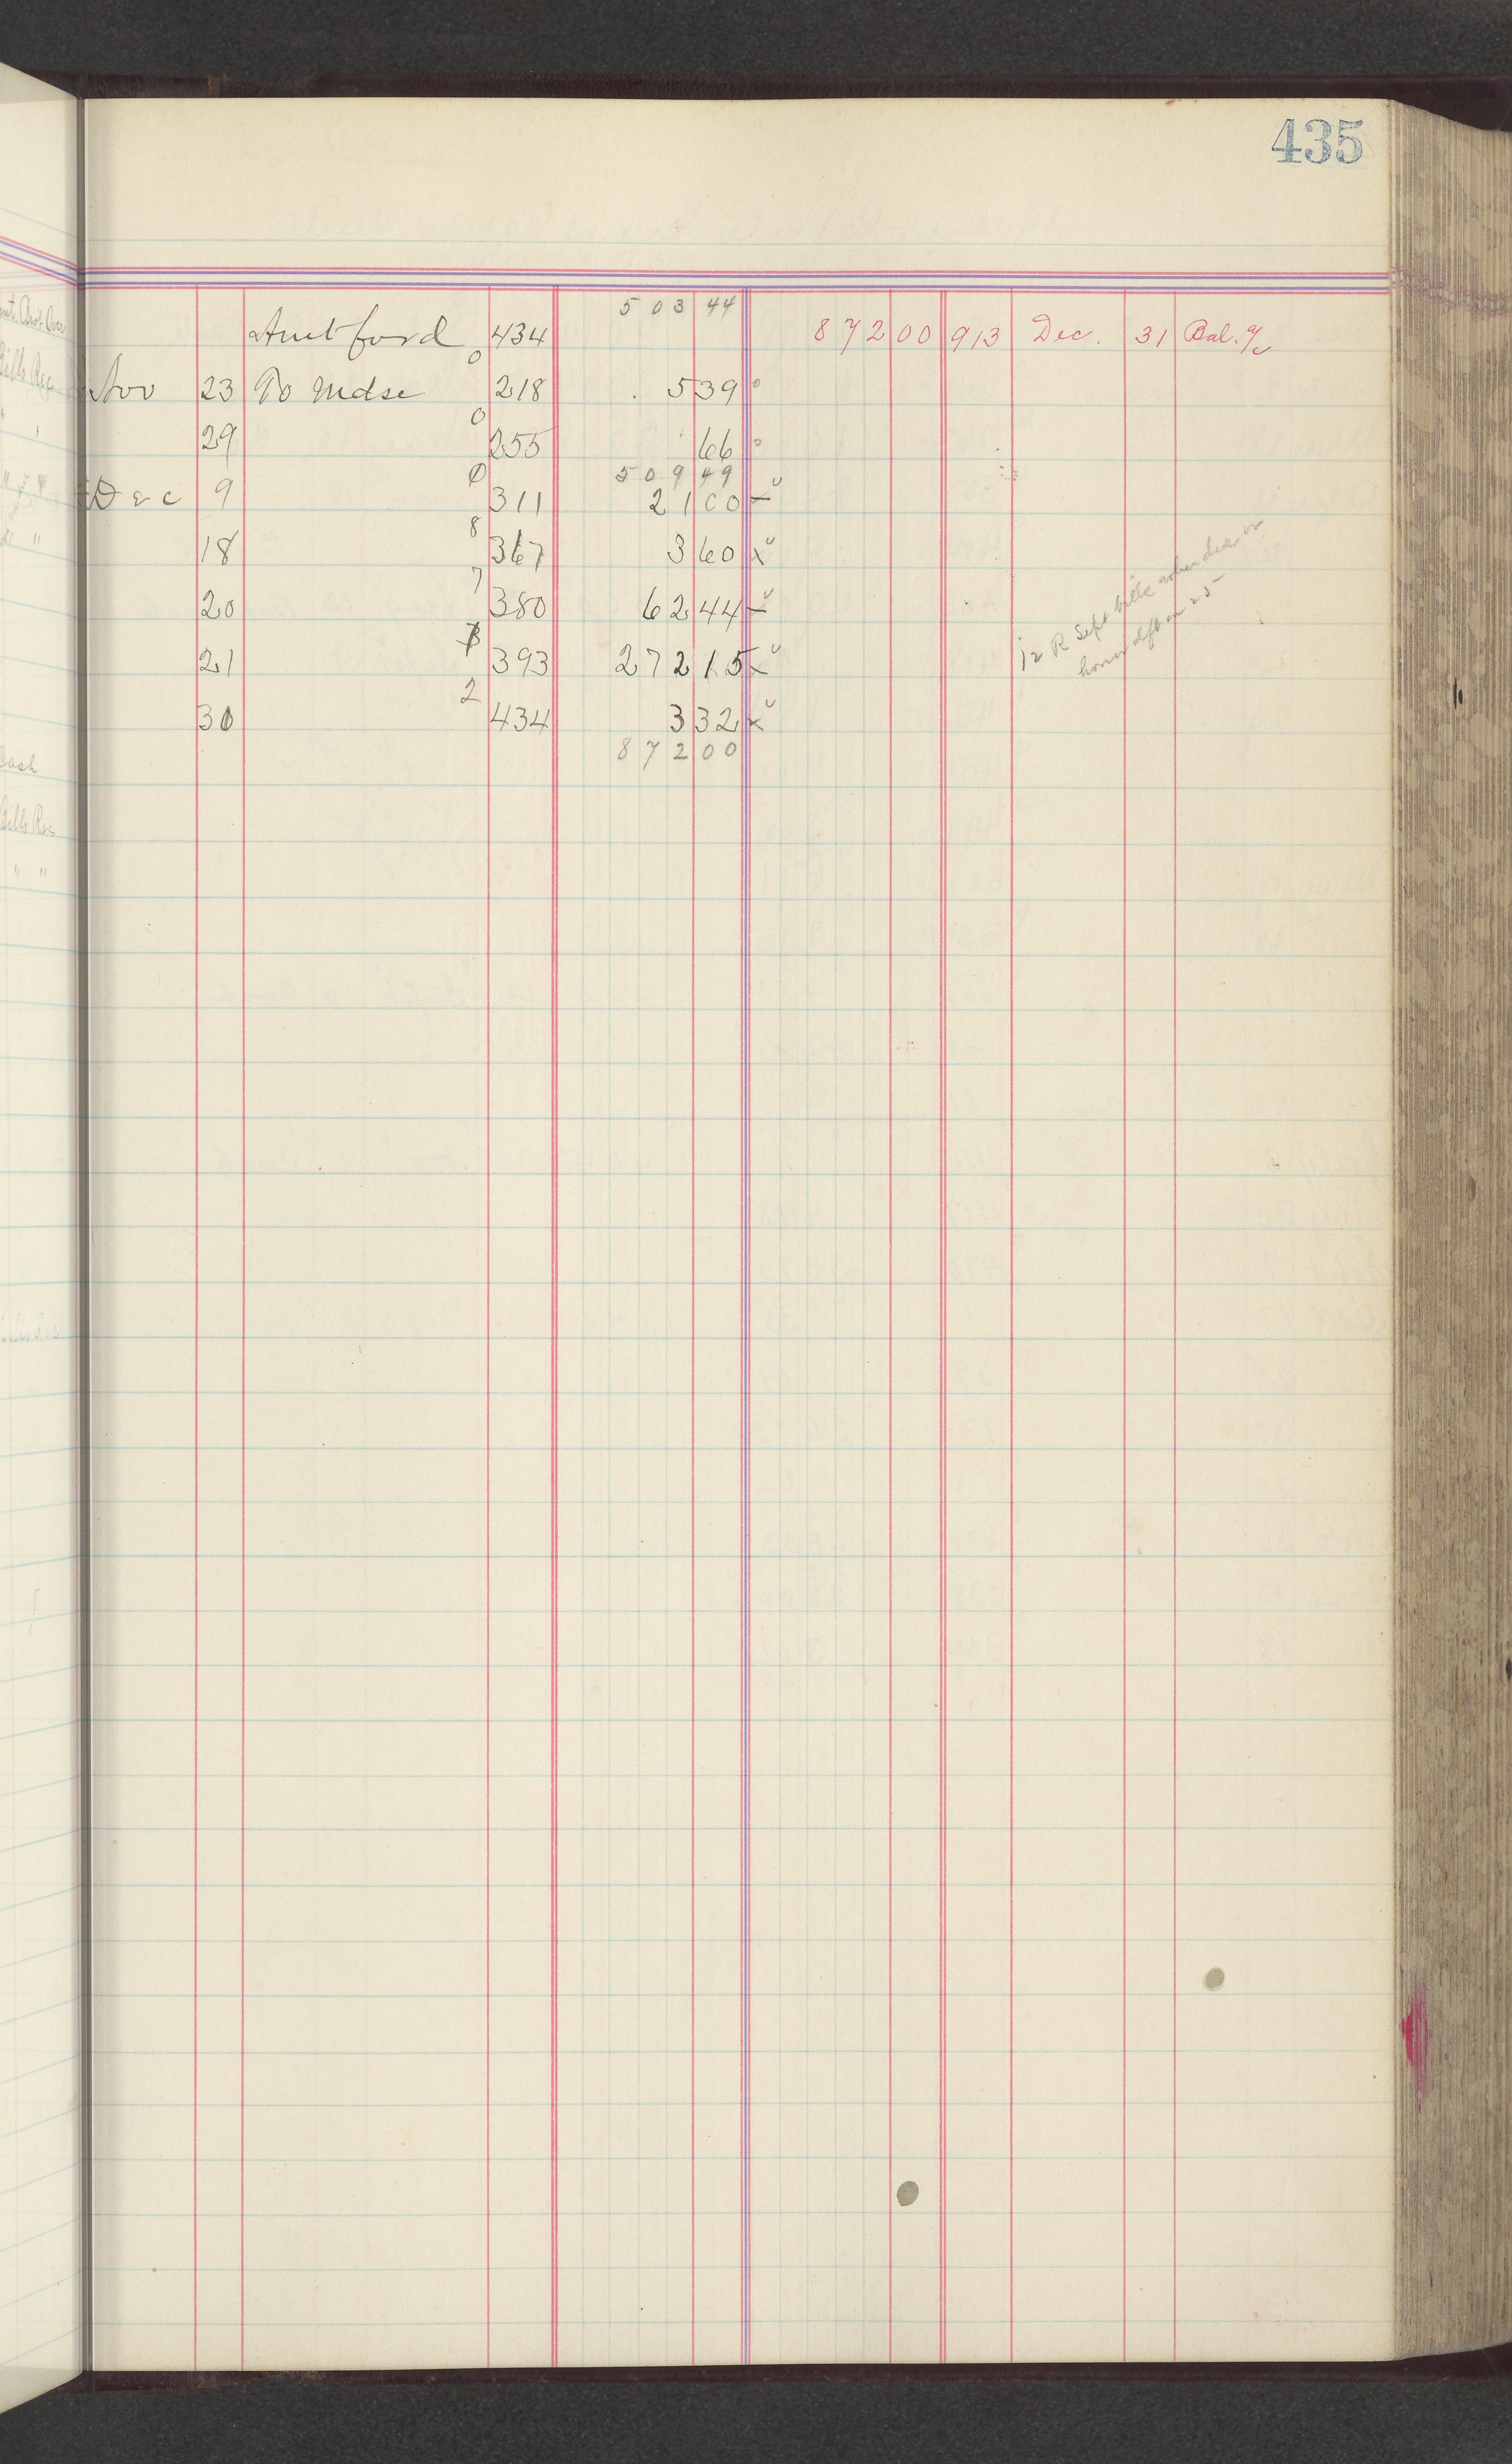 435
503 44
Amt ford 434 872 00 913 Dec. 31 Bal. a/c
Nov 23 To Mdse 0 218 5 39 o
29 0 255 66 o
509 49
Dec 9 0 311 21 00
18 8 367 3 60 x
20 7 380 62 44
21 393 272 15 x
30 2 434 3 32 x
872 00
R Sept bills when due or
25
Cash
Bills Rec
" "